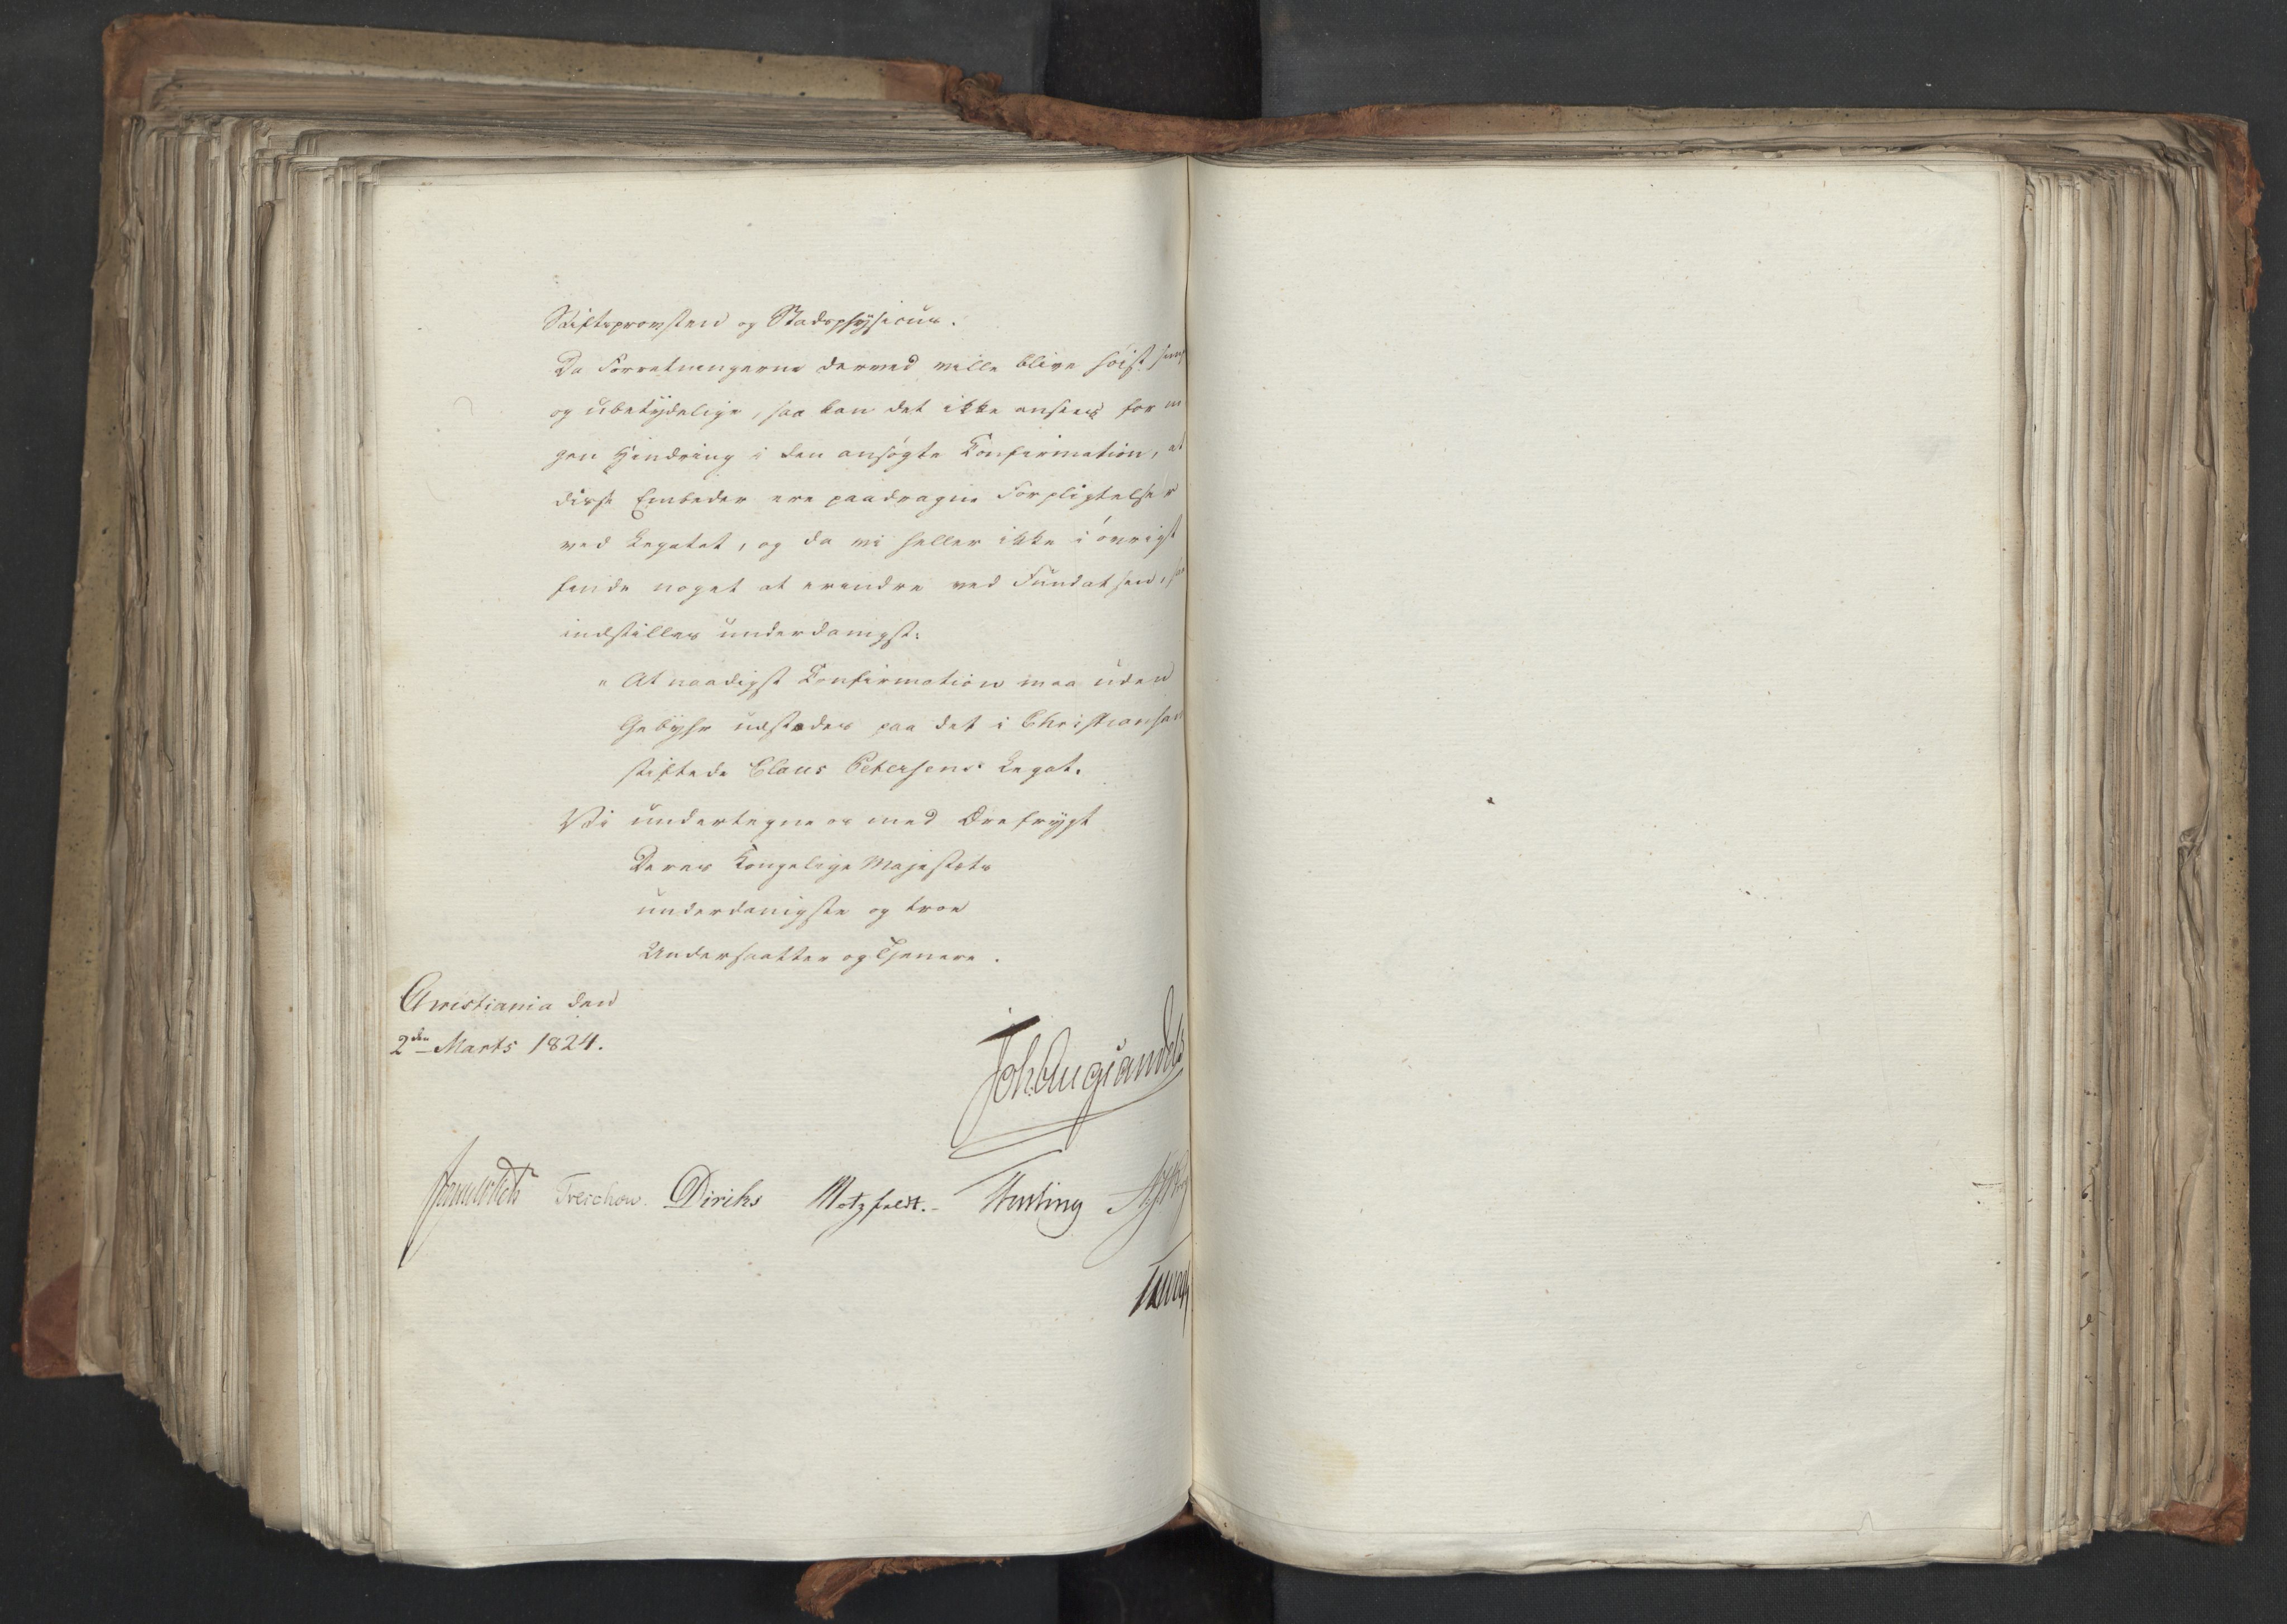 Stiftsprovsten og Stadsphysicus.
Da Forretningerne derved ville blive høist
og ubetydelige, saa kan det ikke ansees for
gen Hindring i den ansøgte Confirmation, at
disse Embeder ere paadragne Forpligtelser
ved Legatet, og da vi heller ikke i øvrigt
finde noget at erindre ved Fundatsen,
indstilles underdanigst:
" At naadigst Confirmation maa uden
Gebyhr udstedes paa det i Christiansan
stiftede Claus Petersens Legat.
Vi undertegne os med Ærefrygt
Deres Kongelige Majestæts
underdanigste og troe
Undersaatter og Tjenere.
Christiania den
2den Marts 1824.
Joh. Aug. Sandels
Sommerhielm Treschow. Diriks Motzfeldt. Hu